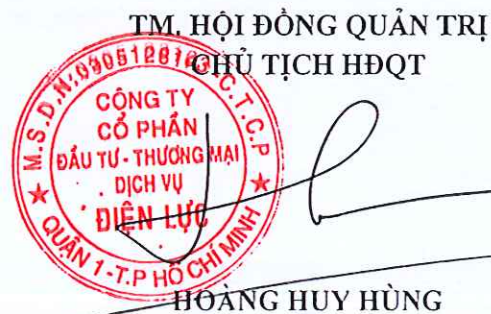 TM. HỘI ĐỒNG QUẢN TRỊ
CHỦ TỊCH HĐQT
C.T.C.P
CÔNG TY
CỔ PHẦN
ĐẦU TƯ - THƯƠNG MẠI
DỊCH VỤ
ĐIỆN LỰC
QUẬN 1-T.P HỒ CHÍ MINH
HOÀNG HUY HÙNG